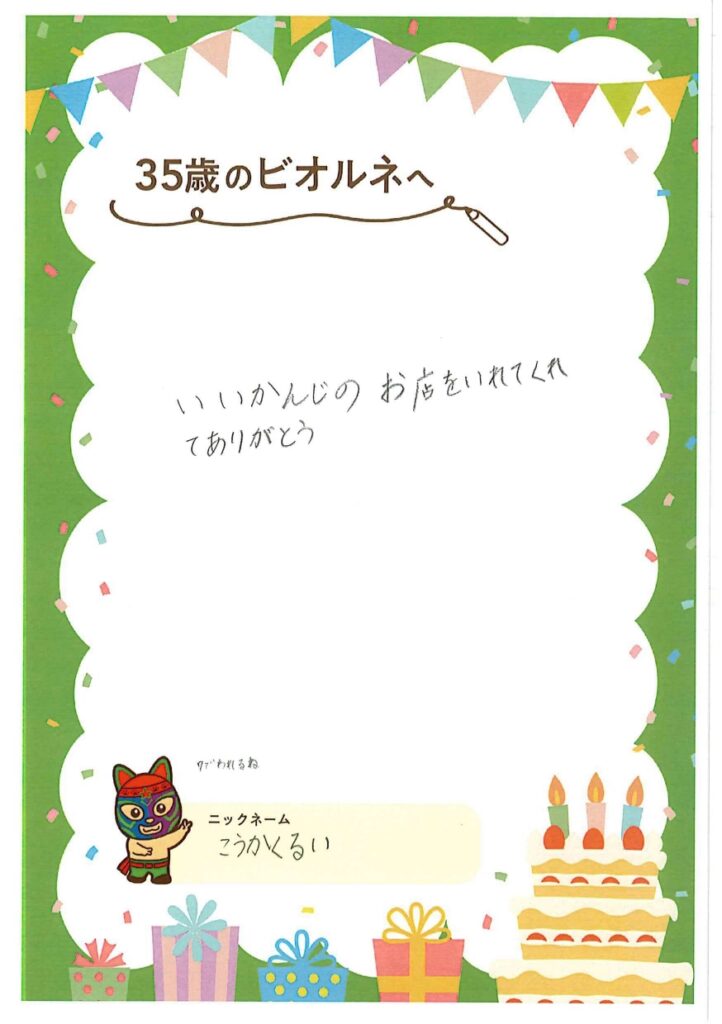 35歳のビオルネへ
いいかんじの お店をいれてくれ
てありがとう
7でわれるね
ニックネーム
こうかくるい